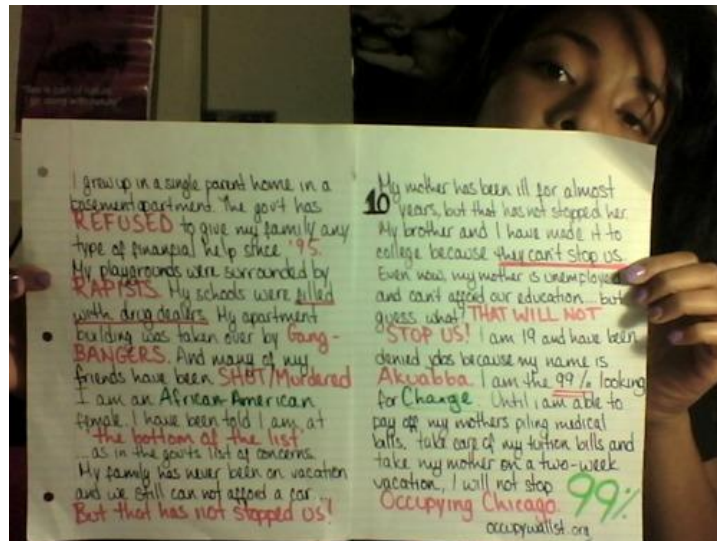 I grew up in a single parent home in a
basement apartment. The gov't has
REFUSED to give my family any
type of financial help since '95.
My playgrounds were surrounded by
RAPISTS. My schools were filled
with drug dealers. My apartment
building was taken over by Gang-
BANGERS. And many of my
friends have been SHOT/Murdered
I am an African-American
female. I have been told I am at
"the bottom of the list"
...as in the govt's list of concerns.
My family has never been on vacation
and we still can not afford a car...
But that has not stopped us!
My mother has been ill for almost
10 years, but that has not stopped her.
My brother and I have made it to
college because they can't stop us.
Even now, my mother is unemployed
and can't afford our education... but
guess what? THAT WILL NOT
STOP US! I am 19 and have been
denied jobs because my name is
Akuabba. I am the 99% looking
for Change. Until i am able to
pay off my mothers piling medical
bills, take care of my tuition bills and
take my mother on a two-week
vacation, I will not stop
Occupying Chicago.
99%
occupywallst.org